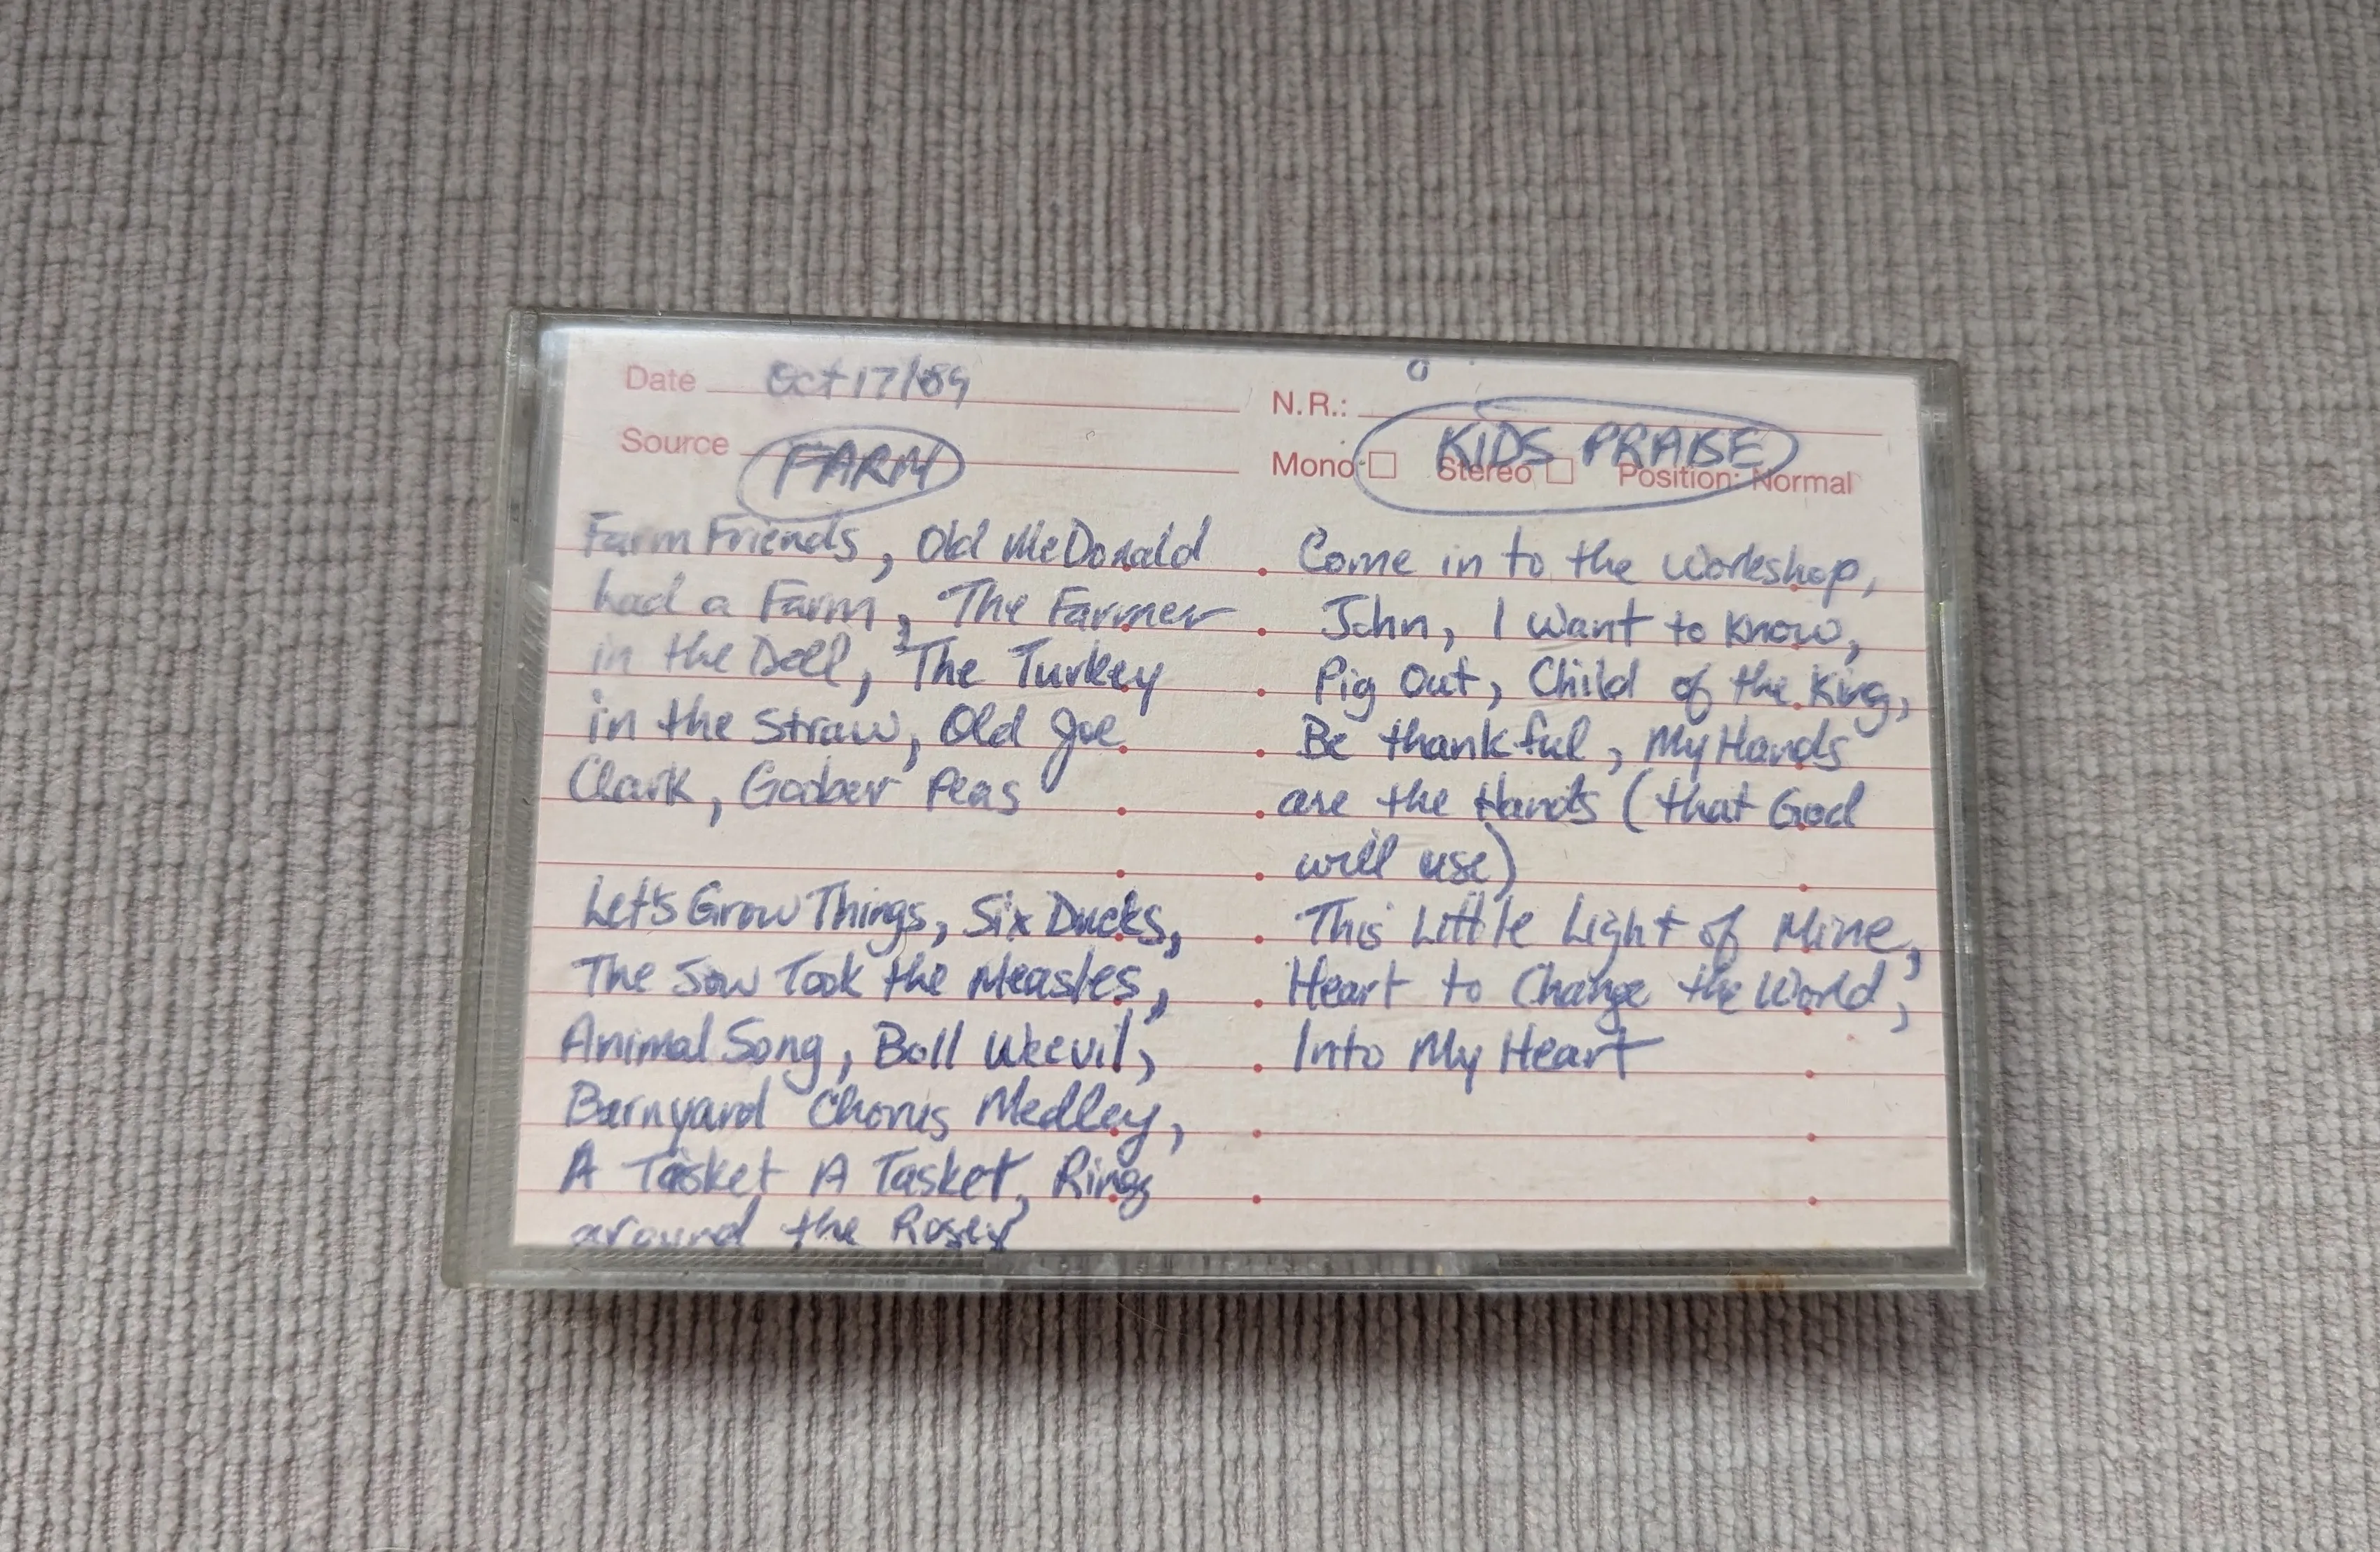 Date Oct 17/89
Source FARM
Farm Friends, Old McDonald
had a Farm, The Farmer
in the Dell, The Turkey
in the Straw, Old Joe
Clark, Goober Peas
Let's Grow Things, Six Ducks,
The Sow Took the Measles,
Animal Song, Boll Weevil,
Barnyard Chorus Medley,
A Tasket A Tasket, Rings
around the Rosey
N.R.:
KIDS PRAISE
Mono Stereo Position: Normal
Come in to the Workshop,
John, I want to know,
Pig Out, Child of the King,
Be thankful, My Hands
are the Hands (that God
will use)
This Little Light of Mine,
Heart to Change the World,
Into My Heart